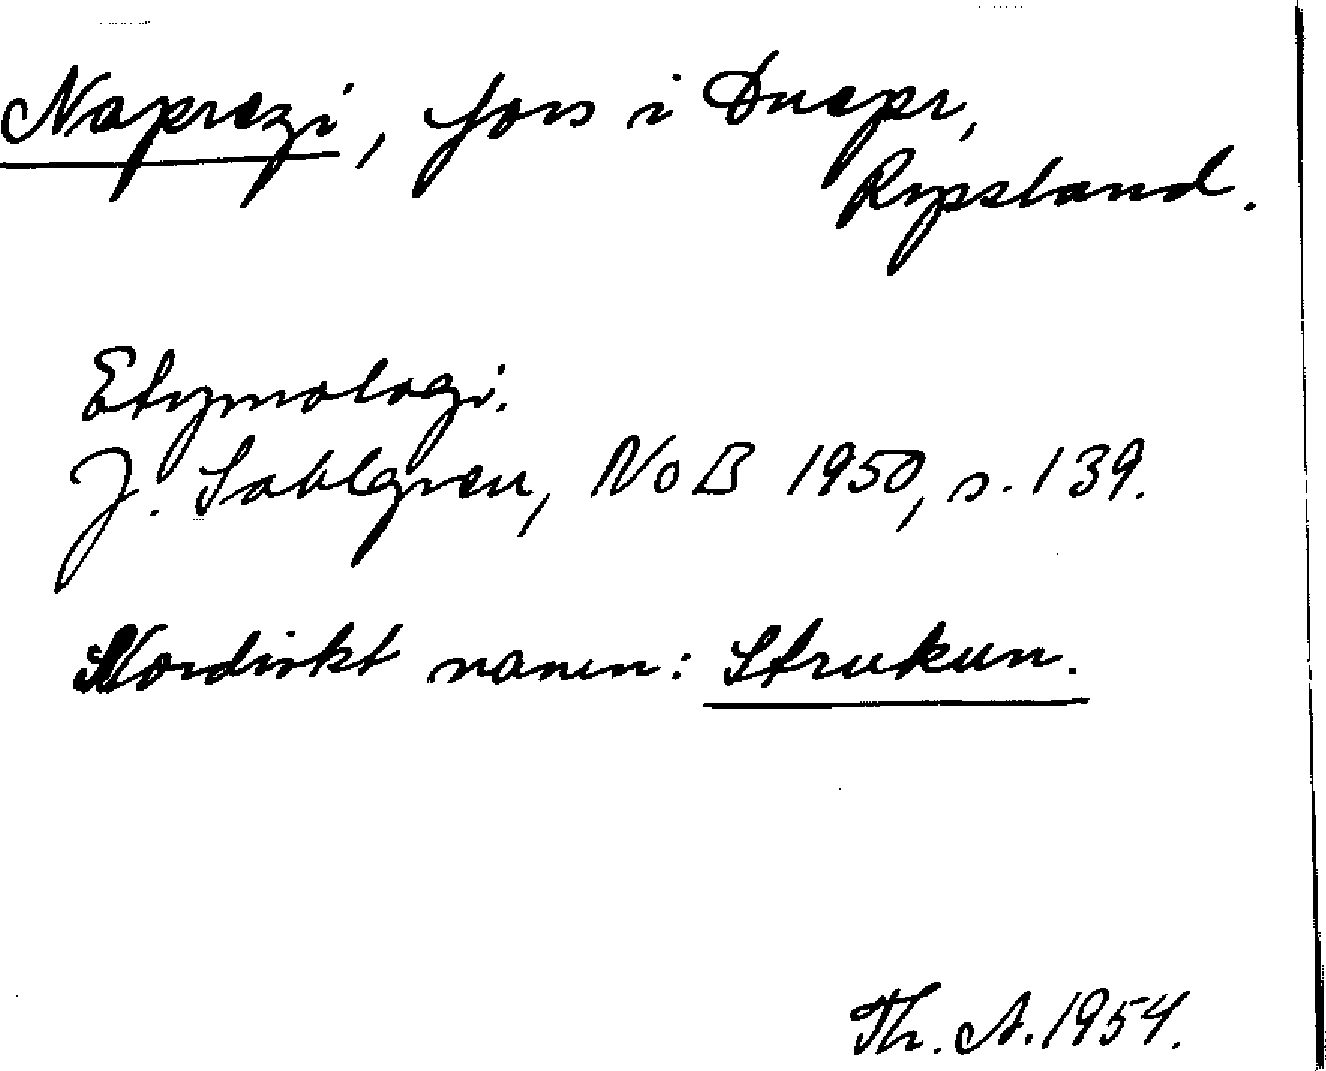 Naprezi, fors i Dnepr,
Ryssland.
Etymologi.
J. Sahlgren, NoB 1950, s. 139.
Nordiskt namn: Strukun.
Th. A. 1954.